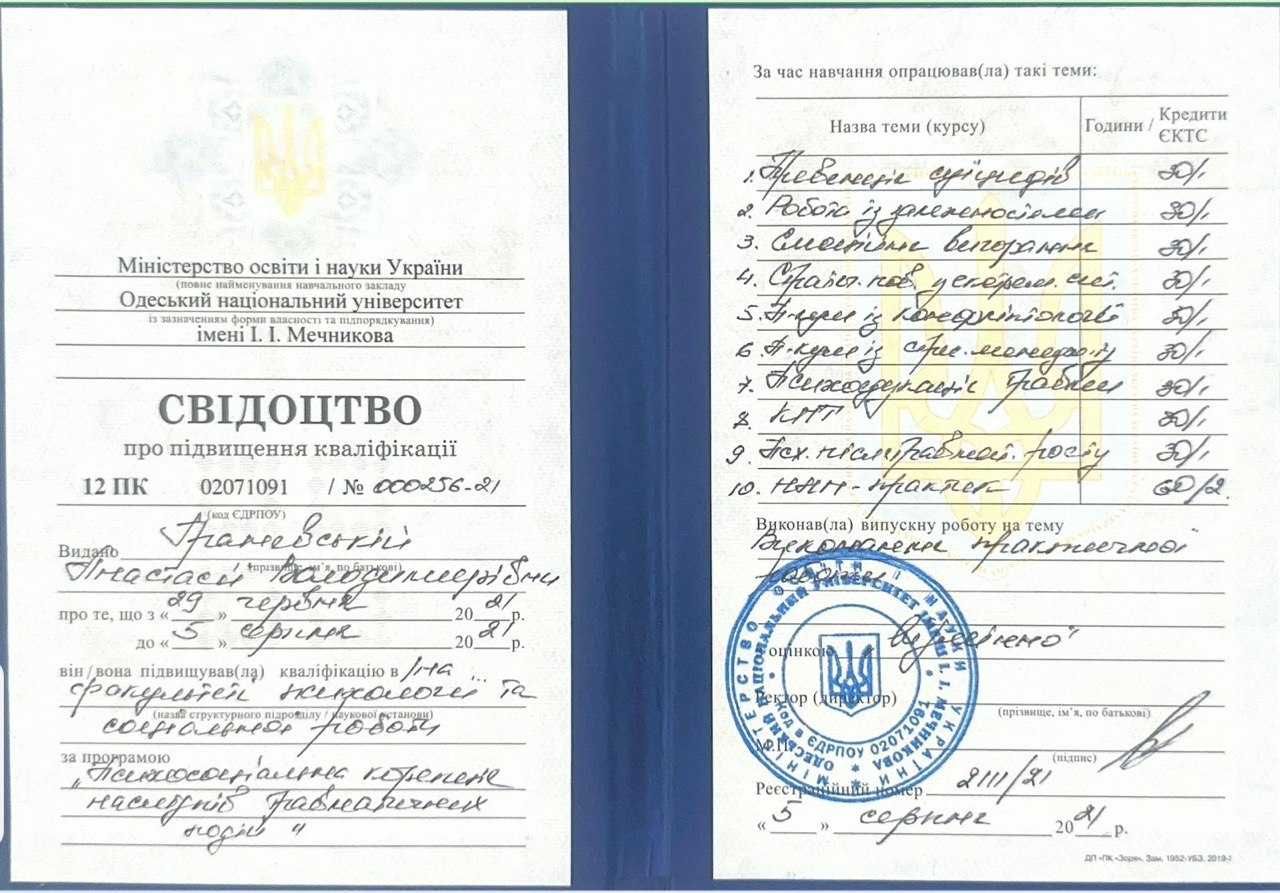 Міністерство освіти і науки України
(повне найменування навчального закладу
Одеський національний університет
із зазначенням форми власності та підпорядкування)
імені І. І. Мечникова
СВІДОЦТВО
про підвищення кваліфікації
12 ПК 02071091 / № 000256-21
(код ЄДРПОУ)
Видано
(прізвище, ім’я, по батькові)
Анастасії Володимирівни
про те, що з «29» червня 2021 р.
до «5» серпня 2021 р.
він/вона підвищував(ла) кваліфікацію в/на ...
факультеті психології та
(назва структурного підрозділу / наукової установи)
соціальної роботи
за програмою
„Психосоціальна корекція
наслідків травматичних
подій“
За час навчання опрацював(ла) такі теми:
Назва теми (курсу) Години / Кредити ЄКТС
1. Превенція суїцидів 30/1
2. Робота із залежностями 30/1
3. Емоційне вигорання 30/1
4. пов. у екстрем. сит. 30/1
5. із конфліктології 30/1
6. із стрес. менеджм. 30/1
7. Психоедукація травми 30/1
8. КПТ 30/1
9. Псх. післятравмат. росту 30/1
10. практик 60/2.
Виконав(ла) випускну роботу на тему
Виконання практичної
роботи
з оцінкою відмінно
Ректор (директор)
(прізвище, ім’я, по батькові)
М.П.
(підпис)
Реєстраційний номер 2111/21
«5» серпня 2021 р.
МІНІСТЕРСТВО ОСВІТИ І НАУКИ УКРАЇНИ
ОДЕСЬКИЙ НАЦІОНАЛЬНИЙ УНІВЕРСИТЕТ ІМЕНІ І. І. МЕЧНИКОВА
Код в ЄДРПОУ 02071091
ДП «ПК «Зоря». Зам. 1952-УБЗ. 2019